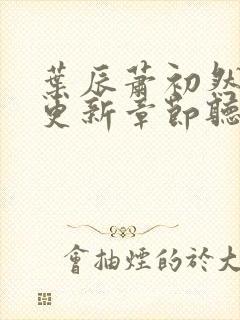 葉辰蕭初然
更新章節聽
會抽煙的於大